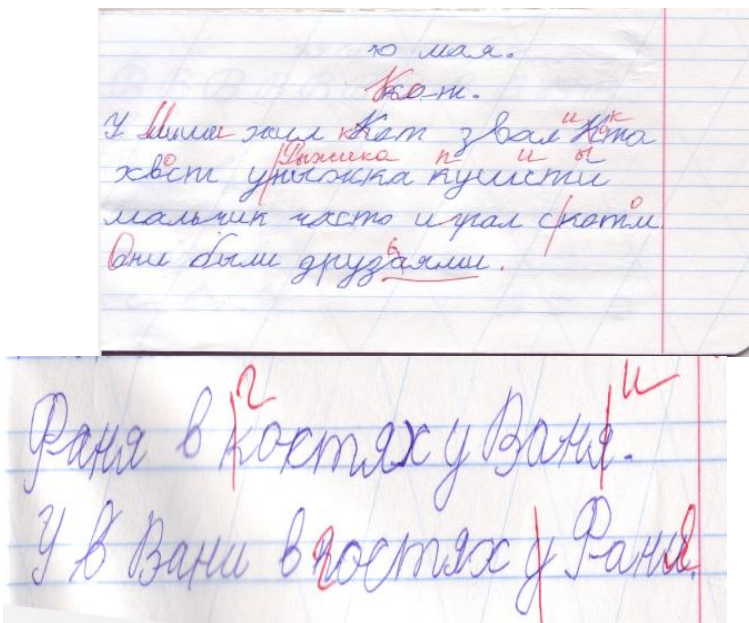 10 мая.
Кот.
У Миши жил Кот звал Кта
о Рыжика п и ы и к
хвст урыжка кушисти
мальчик часто играл скотм.
о
Они были друзаями.
ь
г и
Фаня в костях у Ваня.
У в Вани в гостях у Фаня.